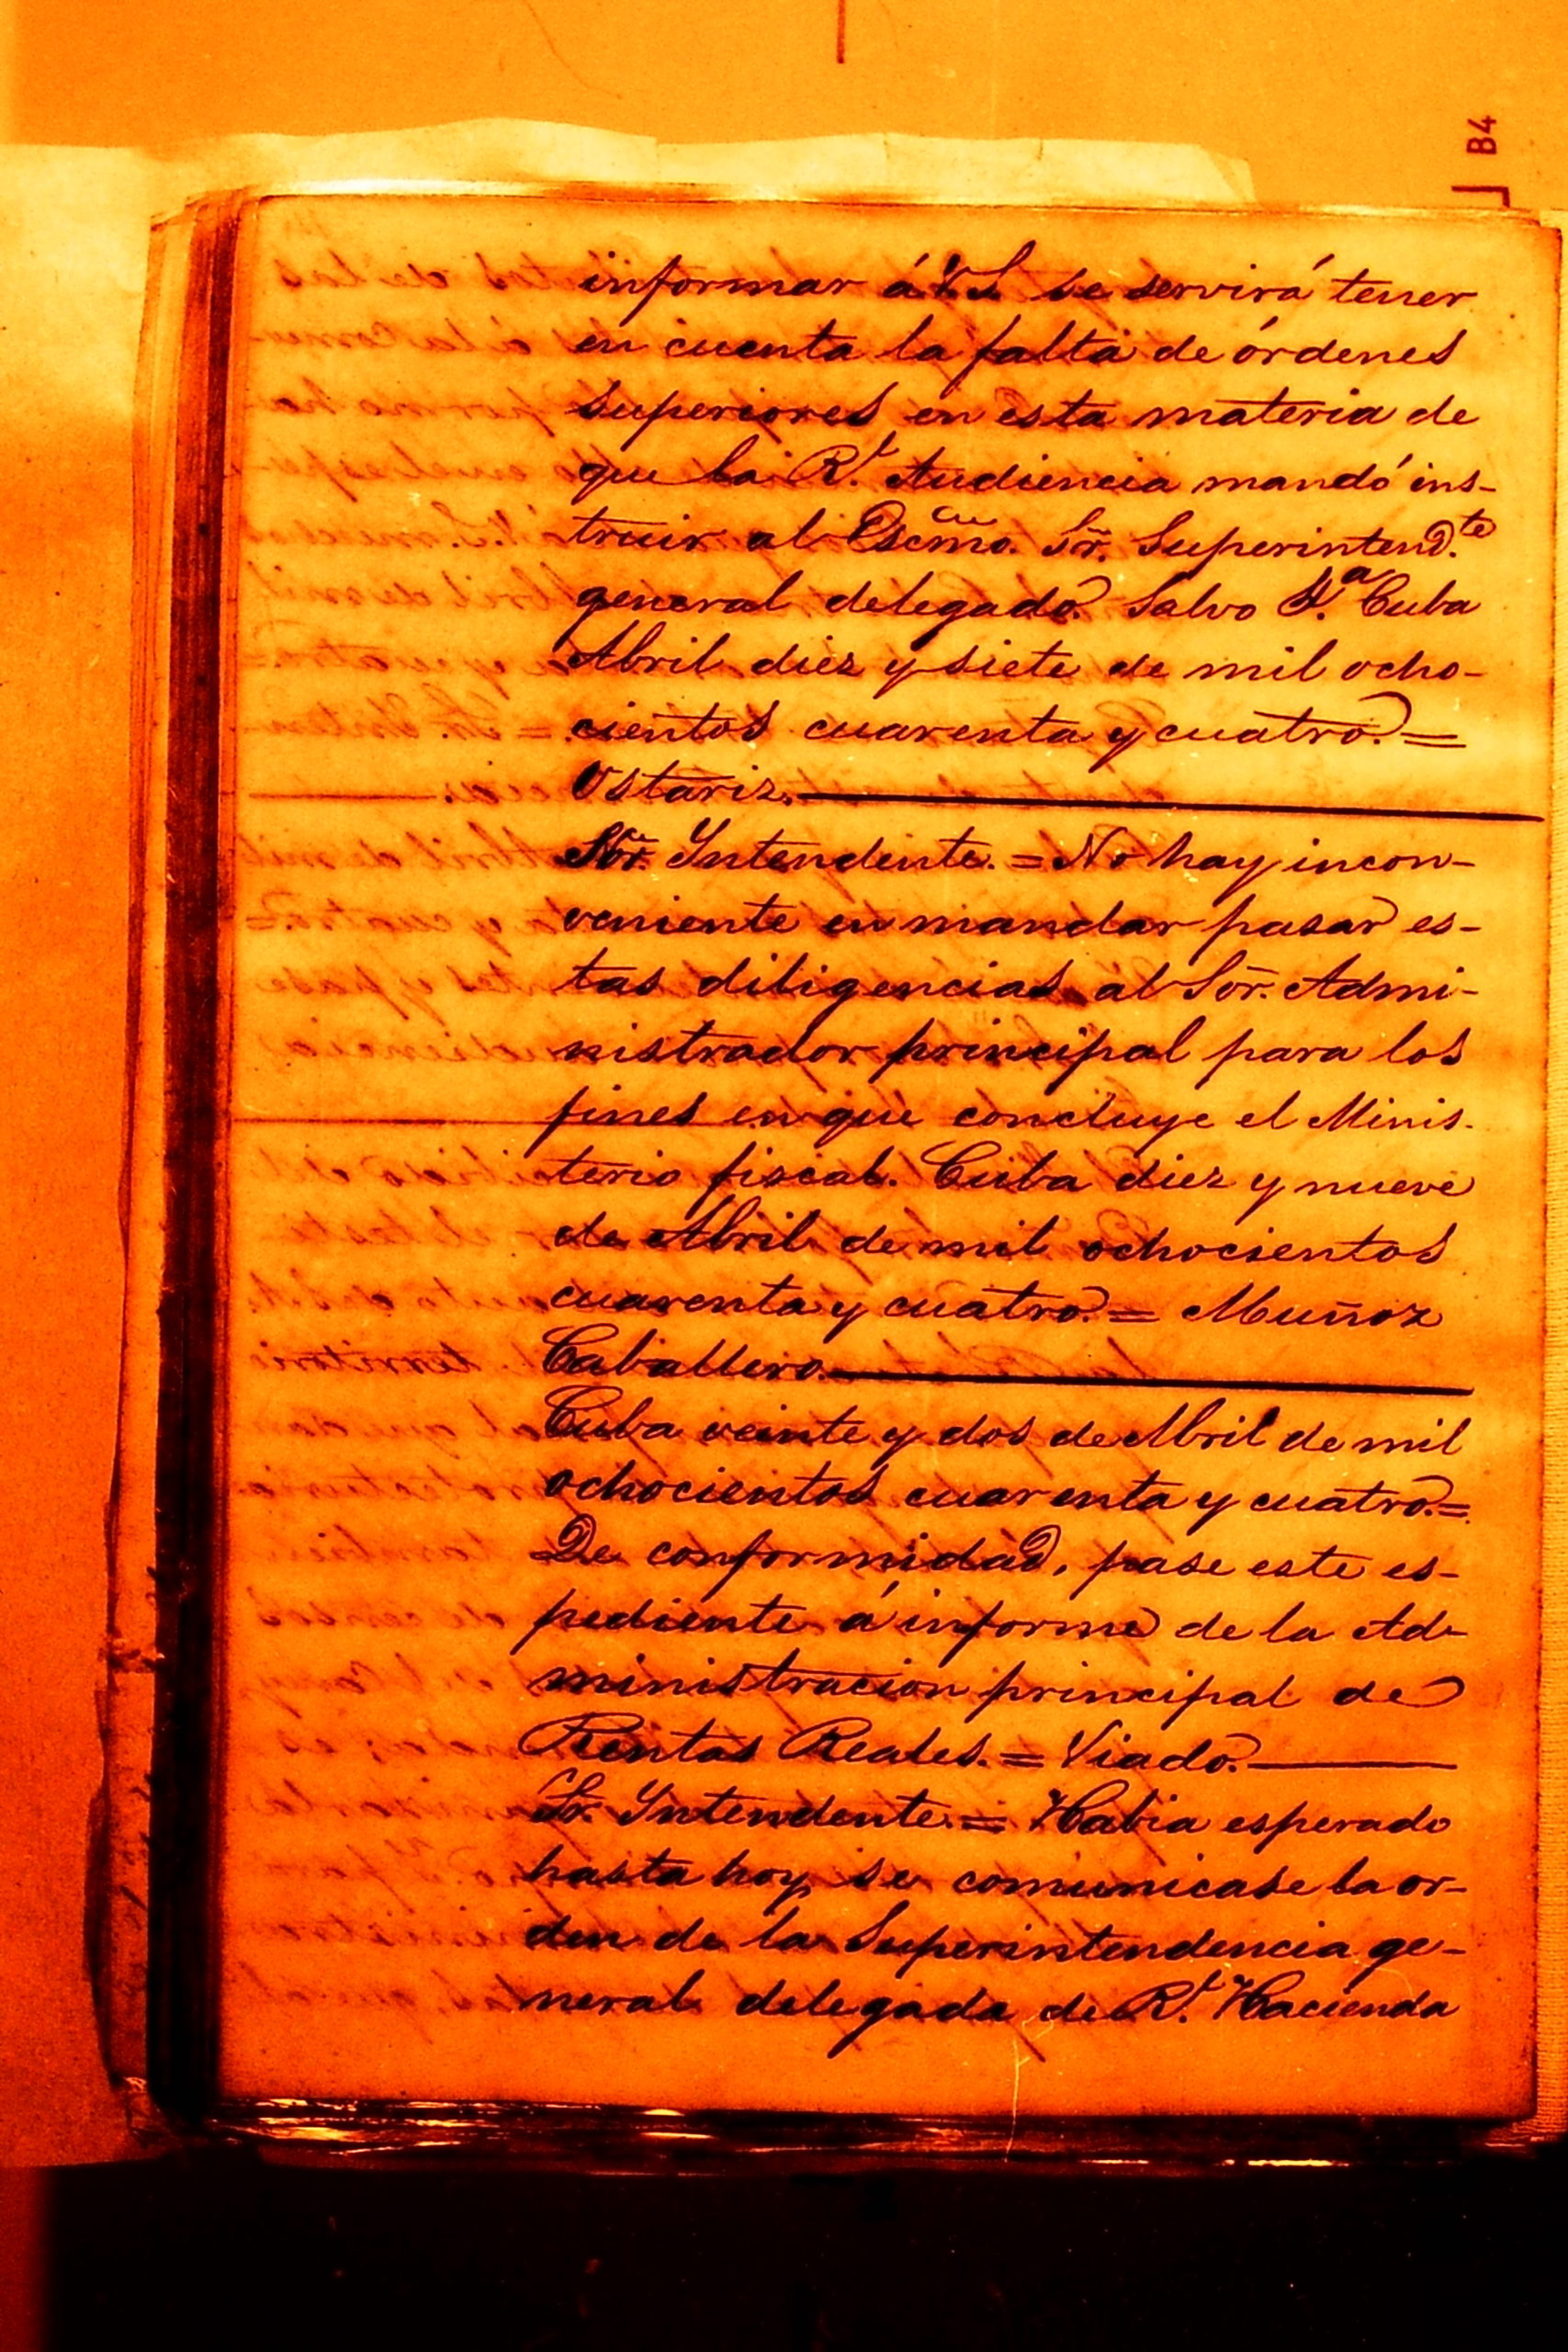 B4
informar á VS se servirá tener
en cuenta la falta de órdenes
superiores en esta materia de
que la Rl. Audiencia mandó ins-
truir al Escmo. Sr. Superintend.te
general delegado. Salvo &.a Cuba
Abril diez y siete de mil ocho-
cientos cuarenta y cuatro.=
Ostariz.
Sor. Yntendente.=No hay incon-
veniente en mandar pasar es-
tas diligencias al Sor. Admi-
nistrador principal para los
fines en que concluye el Minis-
terio fiscal. Cuba diez y nueve
de Abril de mil ochocientos
cuarenta y cuatro.= Muñoz
Caballero.
Cuba veinte y dos de Abril de mil
ochocientos cuarenta y cuatro.=
De conformidad, pase este es-
pediente á informe de la Ad-
ministracion principal de
Rentas Reales.= Viado.
Sr. Yntendente.= Habia esperado
hasta hoy se comunicase la or-
den de la Superintendencia ge-
neral delegada de Rl. Hacienda